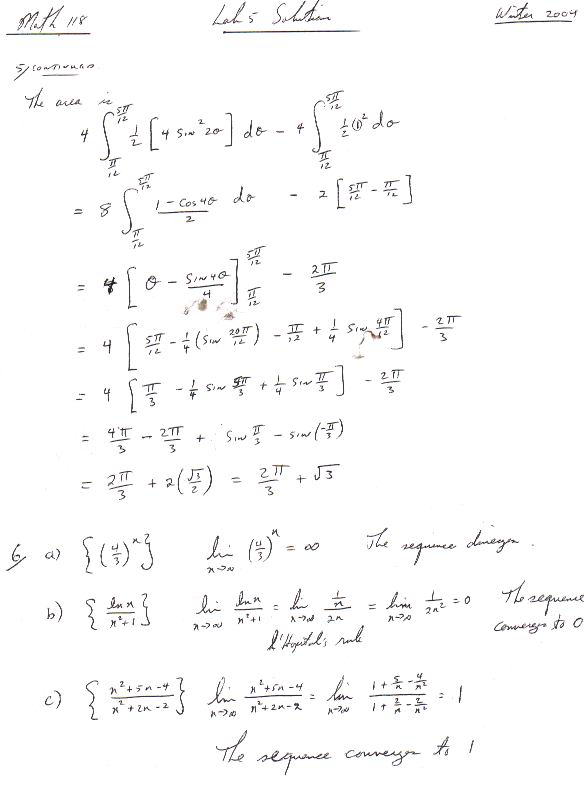 Math 118 Lab 5 Solution Winter 2004
5/ continued
The area is
4 ∫_{π/12}^{5π/12} 1/2 [4 sin²2θ] dθ − 4 ∫_{π/12}^{5π/12} 1/2 (1)² dθ
= 8 ∫_{π/12}^{5π/12} (1 − cos 4θ)/2 dθ − 2 [5π/12 − π/12]
= 4 [θ − sin 4θ/4]_{π/12}^{5π/12} − 2π/3
= 4 [5π/12 − 1/4 (sin 20π/12) − π/12 + 1/4 sin 4π/12] − 2π/3
= 4 [π/3 − 1/4 sin 5π/3 + 1/4 sin π/3] − 2π/3
= 4π/3 − 2π/3 + sin π/3 − sin (−π/3)
= 2π/3 + 2(√3/2) = 2π/3 + √3
6/ a) {(4/3)^n} lim_{n→∞} (4/3)^n = ∞ The sequence diverges.
b) {ln n/(n²+1)} lim_{n→∞} ln n/(n²+1) = lim_{n→∞} (1/n)/(2n) = lim_{n→∞} 1/(2n²) = 0 The sequence
l'Hopital's rule converges to 0
c) {(n²+5n−4)/(n²+2n−2)} lim_{n→∞} (n²+5n−4)/(n²+2n−2) = lim_{n→∞} (1 + 5/n − 4/n²)/(1 + 2/n − 2/n²) = 1
The sequence converges to 1